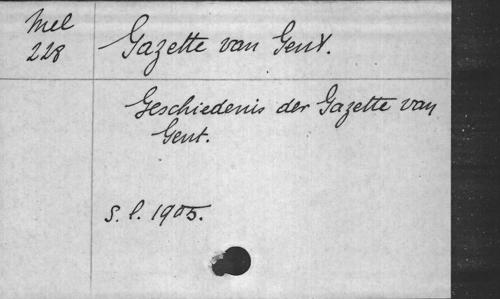 Mel
228
Gazette van Gent.
Geschiedenis der Gazette van
Gent.
S. l. 1905.